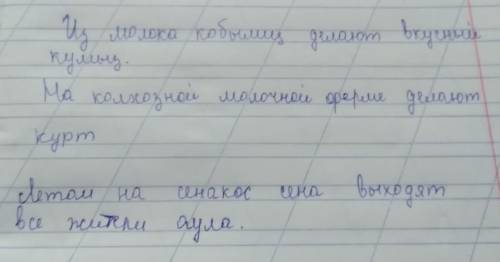 Из молока кобылиц делают вкусный
кумыз.
На колхозной молочной ферме делают
курт
Летом на сенакос сена выходят
все жители аула.